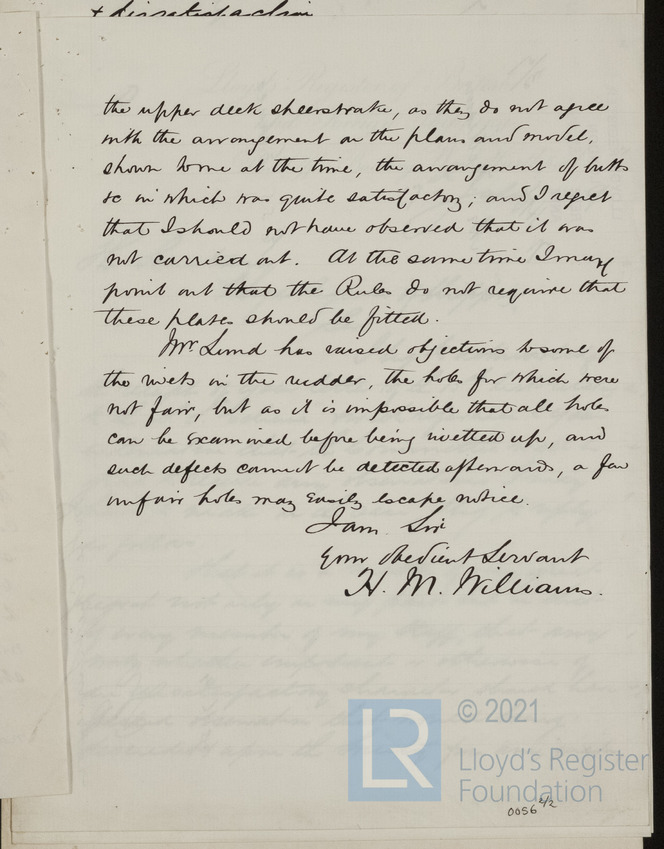 the upper deck sheerstrake, as they do not agree
with the arrangement on the plans and model,
shown to me at the time, the arrangement of butts
&c in which was quite satisfactory; and I regret
that I should not have observed that it was
not carried out. At the same time I may
point out that the Rules do not require that
these plates should be fitted.
Mr. Lund has raised objections to some of
the rivets in the rudder, the holes for which were
not fair, but as it is impossible that all holes
can be examined before being rivetted up, and
such defects cannot be detected afterwards, a few
unfair holes may easily escape notice.
I am Sir
Your obedient Servant
H. M. Williams.
LR
© 2021
Lloyd's Register
Foundation
0056 2/2